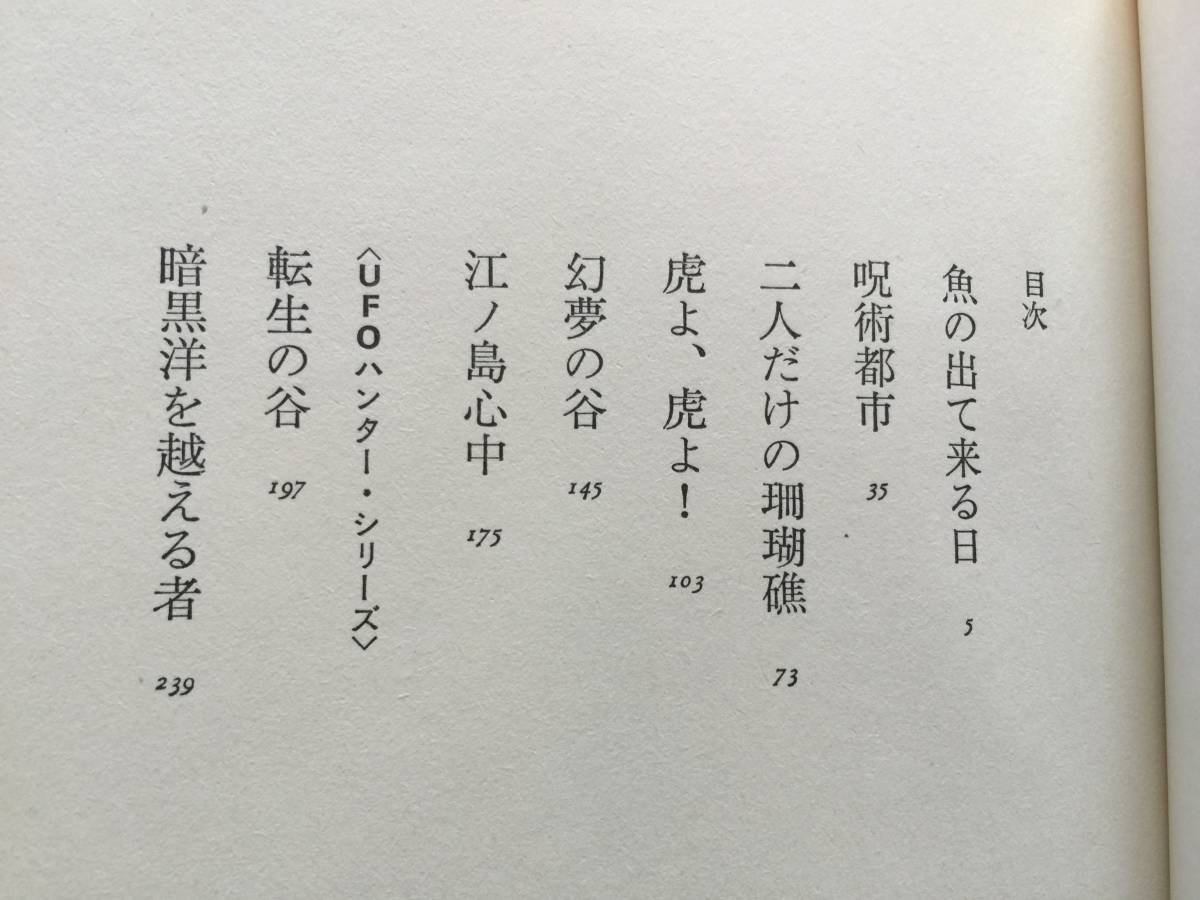 目次
魚の出て来る日 5
呪術都市 35
二人だけの珊瑚礁 73
虎よ、虎よ! 103
幻夢の谷 145
江ノ島心中 175
〈UFOハンター・シリーズ〉
転生の谷 197
暗黒洋を越える者 239